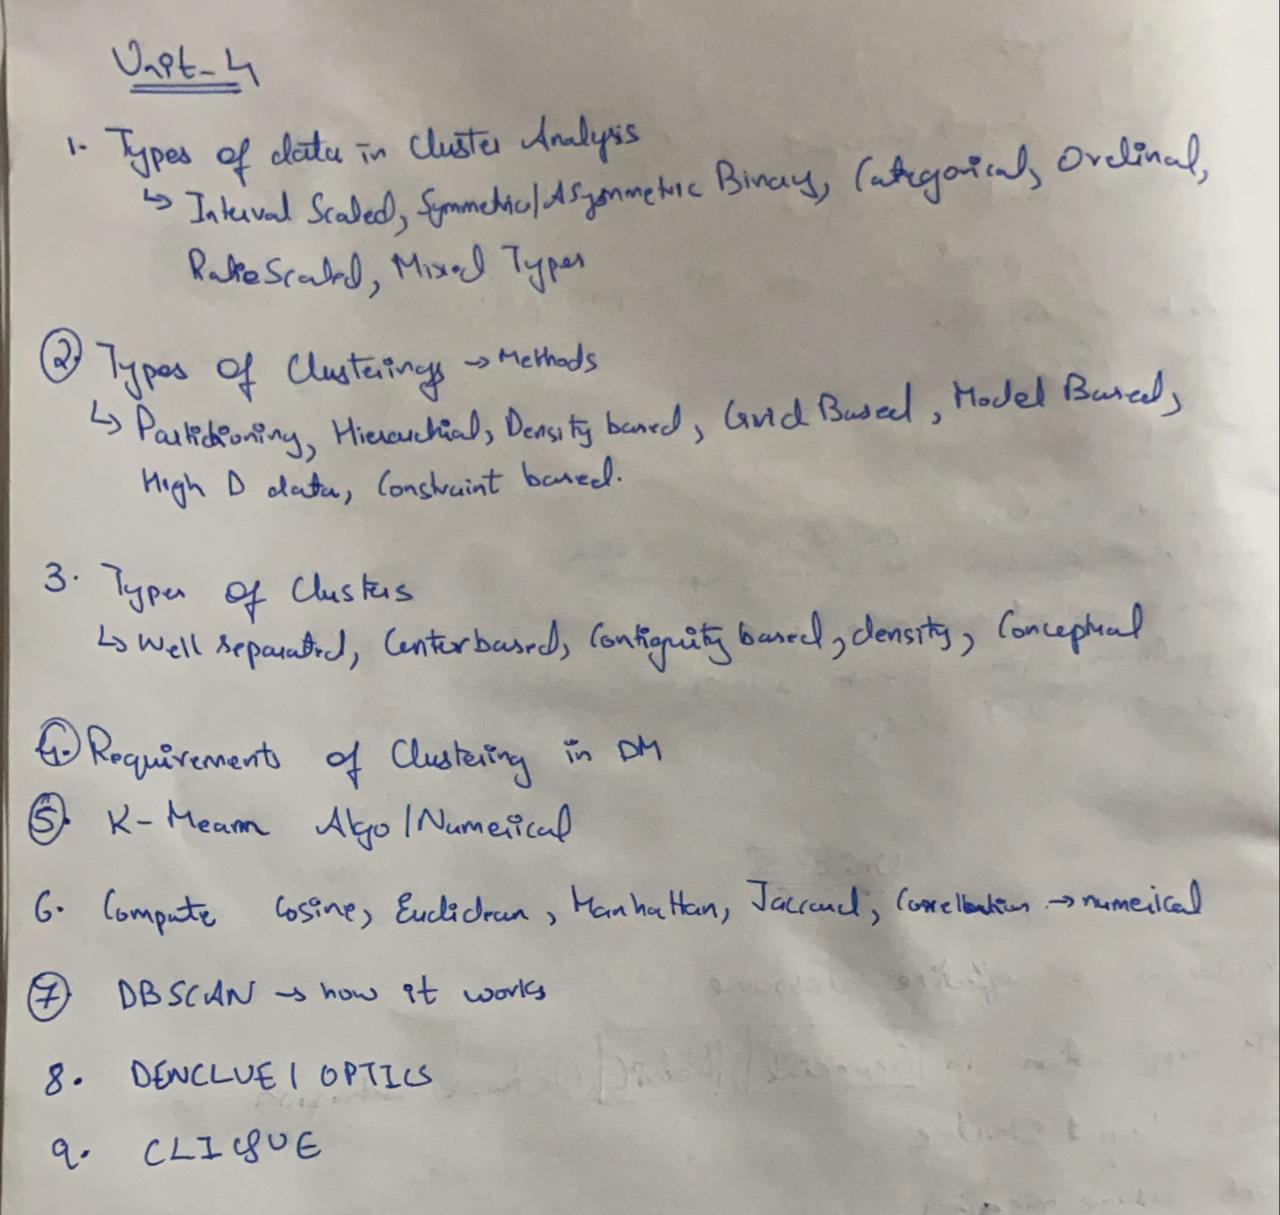 Unit-4
1. Types of data in Cluster Analysis
↳ Interval Scaled, Symmetric/Asymmetric Binary, Categorical, Ordinal,
Ratio Scaled, Mixed Types
② Types of Clusterings → Methods
↳ Partitioning, Hierarchial, Density based, Grid Based, Model Based,
High D data, Constraint based.
3. Types of Clusters
↳ Well separated, Center based, Contiguity based, density, Conceptual
④. Requirements of Clustering in DM
⑤. K-Means Algo/Numerical
6. Compute Cosine, Euclidean, Manhattan, Jaccard, → numerical
⑦ DBSCAN → how it works
8. DENCLUE / OPTICS
9. CLIQUE